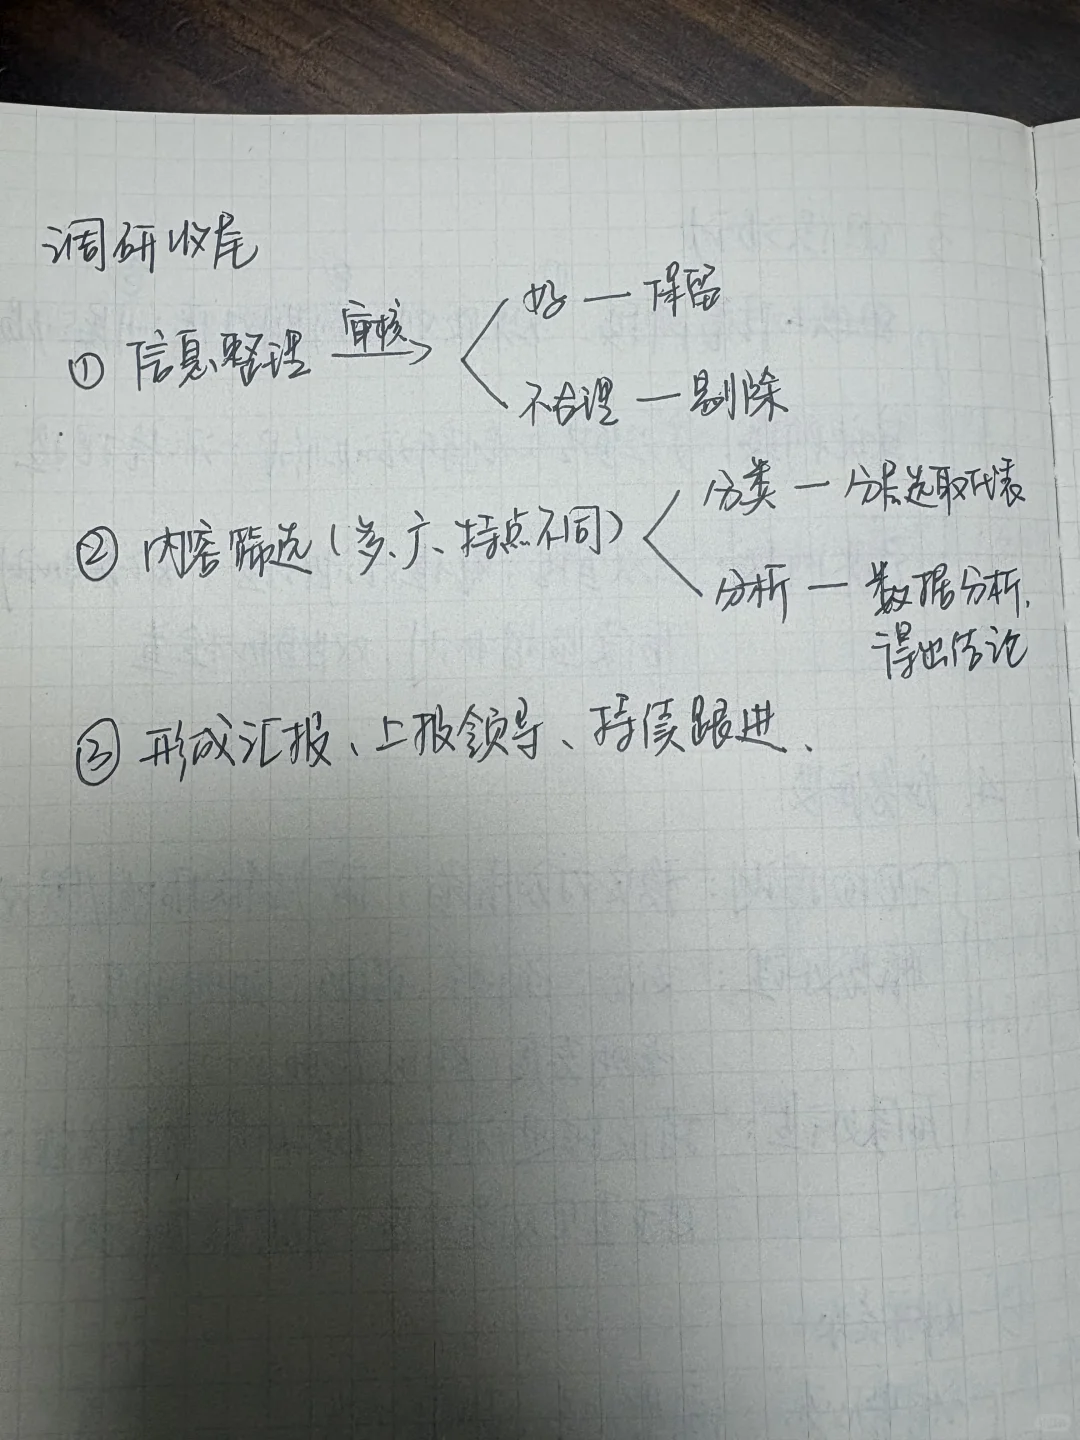 调研收尾
① 信息整理 审核 → 好 — 保留
不合理 — 剔除
② 内容筛选（多、广、特点不同） 分类 — 分层选取代表
分析 — 数据分析，
得出结论
③ 形成汇报、上报领导、持续跟进、